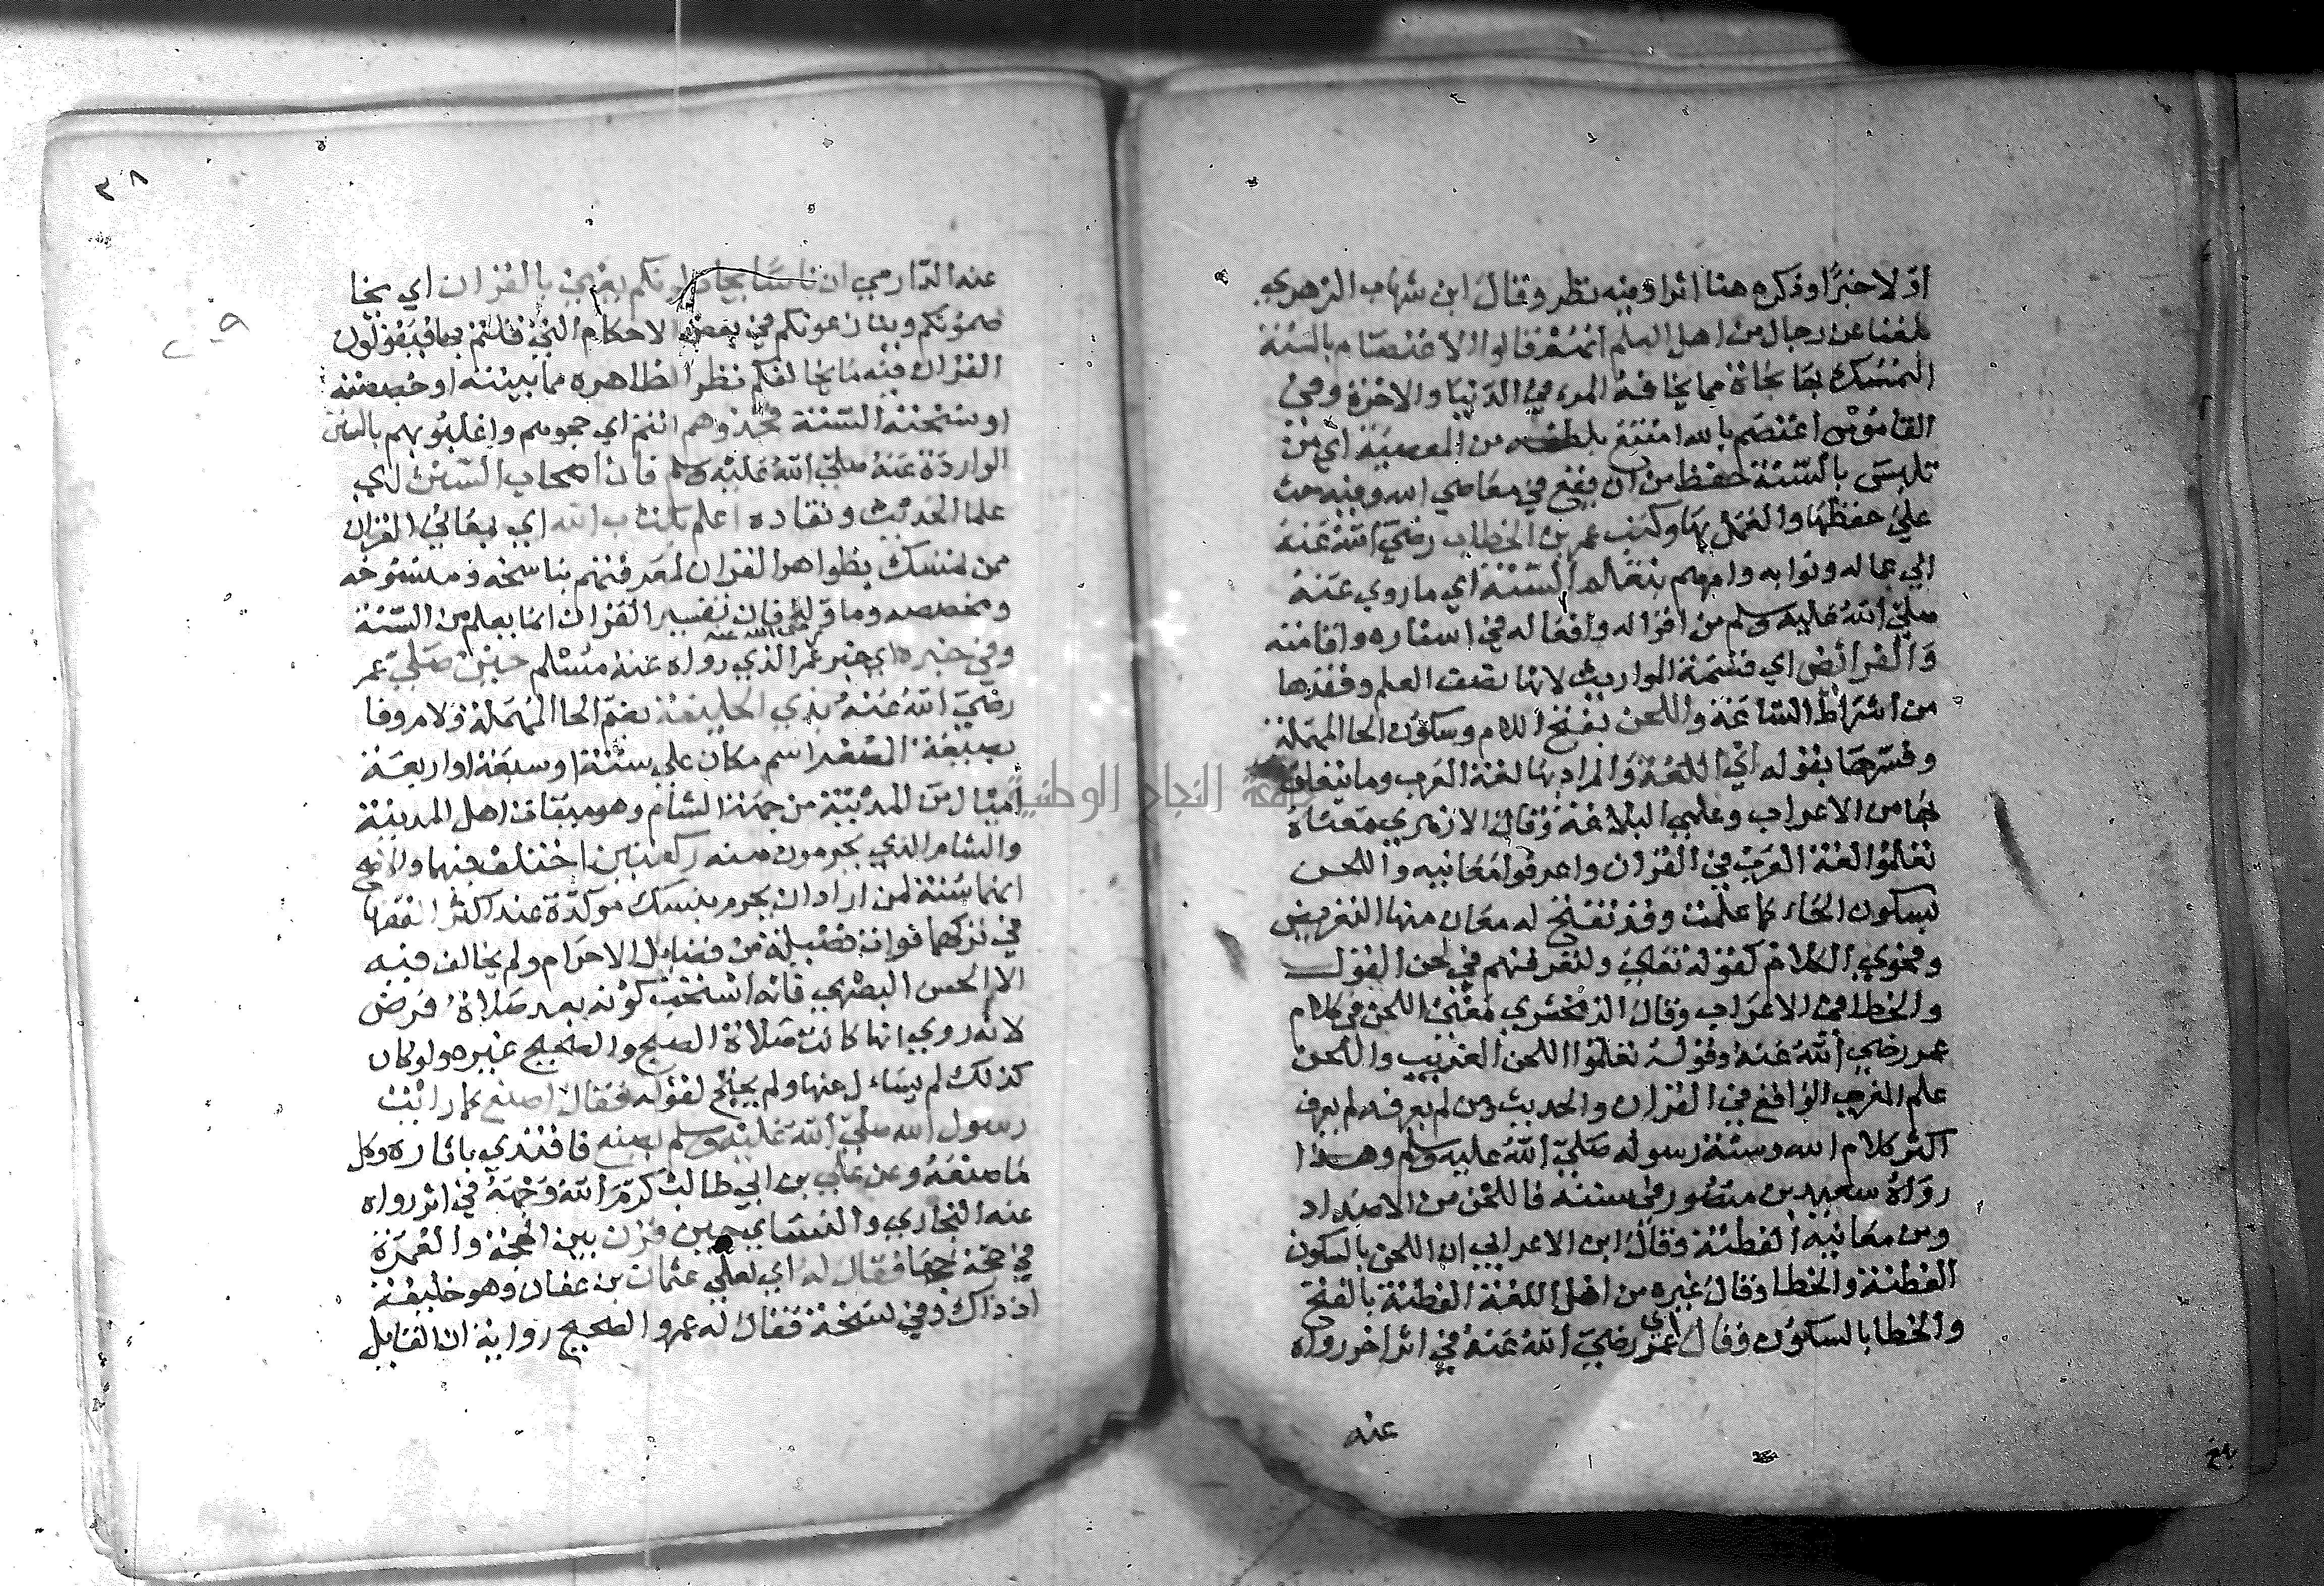 اذ لا خبرًا وذكره هنا اثرا وفيه نظر وقال ابن شهاب الزهري
بلغنا عن رجال من اهل العلم انهم قالوا الاعتصام بالسنة
التمسك بها نجاة مما يخافه المرء في الدنيا والاخرة وفي
القاموس اعتصم بالله امتنع بلطفه من المعصية اي من
تلبس بالسنة حفظ من ان يقع في معاصي الله وفيه حث
علي حفظها والعمل بها وكتب عمر بن الخطاب رضي الله عنه
الي عماله ونوابه وامرهم بتعلم السنة اي ما روي عنه
صلي الله عليه وسلم من اقواله وافعاله في اسفاره واقامته
والفرائض اي قسمة المواريث لانها نصف العلم وفقدها
من اشراط الساعة واللحن بفتح اللام وسكون الحا المهملة
وفسرها بقوله اي اللغة والمراد بها لغة العرب وما يتعلق
بها من الاعراب وعلمي البلاغة وقال الازهري معناه
تعلموا لغة العرب في القران واعرفوا معانيه واللحن
بسكون الحاء كما علمت وقد تفتح له معان منها التعريض
وفحوي الكلام كقوله تعالي ولتعرفنهم في لحن القول
والخطا في الاعراب وقال الزمخشري معني اللحن في كلام
عمر رضي الله عنه وقوله تعلموا اللحن الغريب واللحن
علم الغريب الواقع في القران والحديث ومن لم يعرفه لم يعرف
اكثر كلام الله وسنة رسوله صلي الله عليه وسلم وهذا
رواه سعيد بن منصور في سننه فاللحن من الاضداد
ومن معانيه الفطنة وقال ابن الاعرابي ان اللحن بالسكون
الفطنة والخطا وقال غيره من اهل اللغة الفطنة بالفتح
والخطا بالسكون وقال اي عمر رضي الله عنه في اثر اخر رواه
عنه
٣٨
عنه الدارمي ان ناسا يجادلونكم يعني بالقران اي يخا
صمونكم وينازعونكم في بعض الاحكام التي قلتم بها فيقولون
القران فيه ما يخالفكم نظرا لظاهره مما بينته او خصصته
او نسخته السنة فخذوهم اي حجوهم واغلبوهم بالسنن
الواردة عنه صلي الله عليه وسلم فان اصحاب السنن اي
علما الحديث ونقاده اعلم بكتاب الله اي بمعاني القران
ممن تمسك بظواهر القران لمعرفتهم بناسخه ومنسوخه
ومخصصه وما فان تفسير القران انما يعلم من السنة
وفي خبره اي خبر عمر رضي الله عنه الذي رواه عنه مسلم حين صلي عمر
رضي الله عنه بذي الحليفة بضم الحا المهملة ولام وفا
بصيغة التصغير اسم مكان علي ستة او سبعة او اربعة
اميال من المدينة من جهة الشام وهو ميقات اهل المدينة
والشام الذي يحرمون منه ركعتين اختلف فيهما والاصح
انهما سنة لمن اراد ان يحرم بنسك موكدة عند اكثر الفقها
في تركهما فوات فضيلة من فضايل الاحرام ولم يخالف فيه
الا الحسن البصري فانه استحب كونه بعد صلاة فرض
لانه روي انها كانت صلاة الصبح والصحيح غيره ولو كان
كذلك لم يساءل عنها ولم يحتج لقوله فقال اصنع كما رايت
رسول الله صلي الله عليه وسلم يصنع فاقتدي باثاره وكل
ما صنعه وعن علي بن ابي طالب كرم الله وجهه في اثر رواه
عنه البخاري والنسائي حين قرن بين الحجة والعمرة
في حجة حجها فقال له اي لعلي عثمان بن عفان وهو خليفة
اذ ذاك وفي نسخة فقال له عمر والصحيح رواية ان القايل